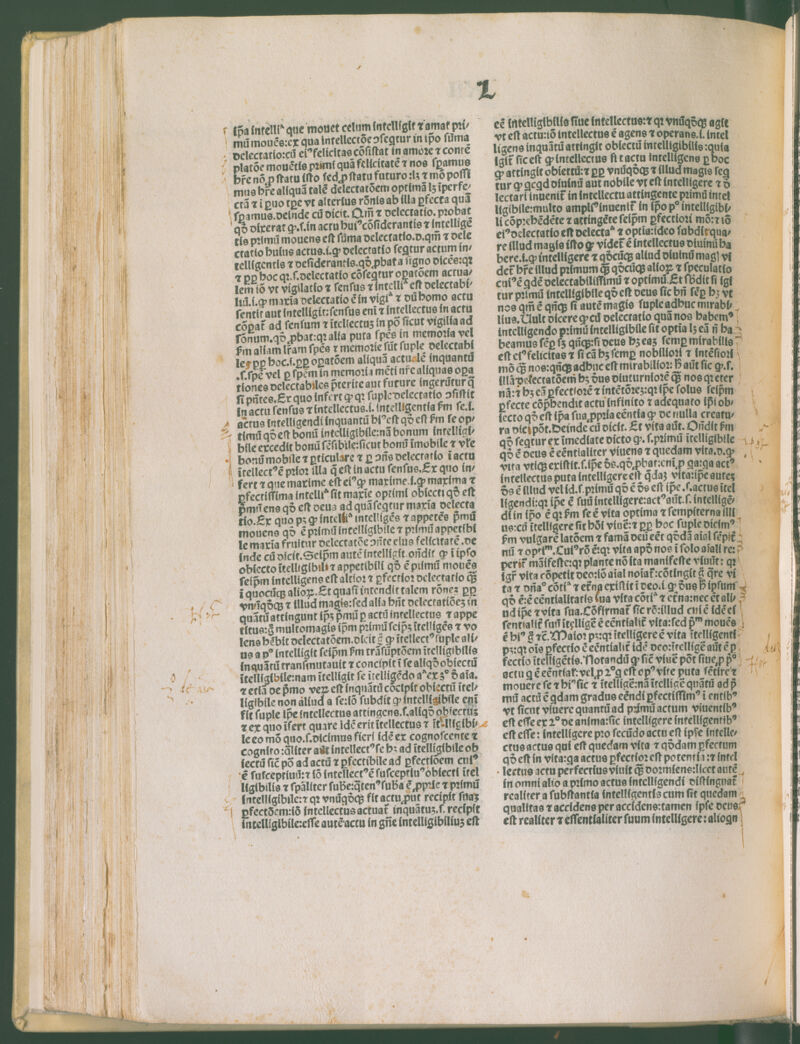 L
ip̄a intelliᵃ que mouet celum intelligit ⁊ amat pri⸗
mū mouēs: ex qua intellectiōe ɔsegtur in ip̄o sūma
delectatio: cū eiꝰ felicitas cōsistat in amore ⁊ contē
platōe mouētis primi quā felicitatē ⁊ nos speramus
hr̄e nō ꝓ statu isto sed ꝓ statu futuro: lꝫ ⁊ mō possi
mus hr̄e aliquā talē delectatōem optimā lꝫ iperfe⸗
ctā ⁊ i paruo tpe vt alterius rōnis ab illa ꝑfecta quā
speramus. deinde cū dicit. Qm̄ ⁊ delectatio. probat
qd̄ dixerat ꝙ. s. in actu huiꝰ cōsiderantis ⁊ intelligē
tis primū mouens est sūma delectatio. d. qm̄ ⁊ dele
ctatio huius actus. i. ꝙ delectatio segtur actum in⸗
telligentis ⁊ desiderantis. qd̄ ꝓbat a signo dicēs: qꝛ
⁊ ꝓꝑ hoc qꝛ. s. delectatio cōsegtur opatōem actua⸗
lem iō vt vigilatio ⁊ sensus ⁊ intelliᵃ est delectabi⸗
liū. i. ꝙ maxia delectatio ē in vigiᵃ ⁊ dū homo actu
sentit aut intelligit: sensus eni ⁊ intellectus in actu
cōpat̄ ad sensum ⁊ itellectuꝫ in pō sicut vigilia ad
sōnum. qd̄ ꝓbat: qꝛ alia puta spēs in memoria vel
ꝑm aliam lr̄am spēs ⁊ memorie sūt suple delectabi
les ꝓꝑ hoc. i. ꝓꝑ opatōem aliquā actualē inquantū
. s. spē vel ꝑ spēm in memoria mēti nr̄e aliquas opa
tiones delectabiles preterite aut future ingerūtur q̄
si pn̄tes. Ex quo infert ꝙ qꝛ suple delectatio ɔsistit
in actu sensus ⁊ intellectus. i. intelligentia ꝑm se. i.
actus intelligendi inquantū hiꝰ est qd̄ est ꝑm se op⸗
timū qd̄ est bonū intelligibile: nā bonum intelligi⸗
bile excedit bonū sēsibile: sicut bonū imobile ⁊ vl̄e
bonū mobile ⁊ ꝑticulare ⁊ ꝑ ɔn̄s delectatio i actu
itellectꝰ ē prior illa q̄ est in actu sensus. Ex quo in⸗
fert ⁊ que maxime est eiꝰ ꝙ maxime. i. ꝙ maxima ⁊
ꝑfectissima intelliᵃ sit maxie optimi obiecti qd̄ est
pͥmū ens qd̄ est deus ad quā segtur maxia delecta
tio. Ex quo pꝫ ꝙ intelliᵃ intelligēs ⁊ appetēs pͥmū
mouens qd̄ ē primū intelligibile ⁊ primū appetibi
le maxia fruitur delectatōe ɔn̄te eius felicitatē. de
inde cū dicit. Seipm̄ autē intelligit. on̄dit ꝙ i ipso
obiecto itelligibili ⁊ appetibili qd̄ ē primū mouēs
seipm̄ intelligens est altior ⁊ ꝑfectior delectatio ꝙ̄
i quocūqꝫ alioꝝ. Et quasi intendit talem rōneꝫ ꝓꝑ
vnūqd̄qꝫ ⁊ illud magis: sed alia hn̄t delectatiōeꝫ in
quātū attingunt ip̄ꝫ pͥmū ꝑ actū intellectus ⁊ appe
titus: ꝗ̄ multomagis ip̄m primū seipꝫ itelligēs ⁊ vo
lens hēbit delectatōem. dicit ꝗ̄ ꝙ itellectꝰ suple ali⸗
us a pͦ intelligit seipm ꝑm trāsūptōem itelligibilis
inquātū transmutauit ⁊ concipit i se aliqd̄ obiectū
itelligibile: nam itelligit se itelligēdo aᵃ ex 3ͦ d̄ aīa.
⁊ etiā de pͥmo vez est inquantū cōcipit obiectū itel⸗
ligibile non aliud a se: iō subdit ꝙ intelligibile eni
sit suple ip̄e intellectus attingens. s. aliqd̄ obiectuꝫ
⁊ ex quo ifert quare idē erit itellectus ⁊ itelligibi⸗
le eo mō quo. s. dicimus fieri idē ex cognoscente ⁊
cognito: q̄liter aūt intellectꝰ se hꝫ ad itelligibile ob
iectū sic pō ad actū ⁊ ꝑfectibile ad ꝑfectiōem cuiꝰ
ē susceptiuū: ⁊ iō intellectꝰ ē susceptiuꝰ obiecti itel
ligibilis ⁊ spāliter suꝫe: q̄tenꝰ suba ē, ꝓprie ⁊ primū
intelligibile: ⁊ qꝛ vnūqd̄qꝫ fit actu, put recipit suaꝫ
ꝑfectōem: iō intellectus actuat inquātuꝫ. s. recipit
intelligibile: esse autē actu in gn̄e intelligibiliuꝫ est
eē intelligibilis siue intellectus: ⁊ qꝛ vnūqd̄qꝫ agit
vt est actu: iō intellectus ē agens ⁊ operans. i. intel
ligens inquātū attingit obiectū intelligibilis: quia
igit̄ sic est ꝙ intellectus fit actu intelligens ꝑ hoc
ꝙ attingit obiectū: ⁊ ꝓꝑ vnūqd̄qꝫ ⁊ illud magis seq
tur ꝙ qcqd diuinū aut nobile vt est intelligere ⁊ d̄
lectari inuenit in intellectu attingente primū intel
ligibile: multo ampliꝰ inuenit in ip̄o pͦ intelligibi⸗
li cōp̄hēdēte ⁊ attingēte seipm̄ ꝑfectiori mō: ⁊ iō
eiꝰ delectatio est delectaᵃ ⁊ optia: ideo subdit: qua⸗
re illud magis isto ꝙ videt ē intellectus diuinū ha
bere. i. ꝙ intelligere ⁊ qd̄cūqꝫ aliud diuinū magl vi
det hr̄e illud primum ꝙ̄ qd̄cūqꝫ alioꝝ ⁊ speculatio
cuiꝰ ē qdē delectabilissimū ⁊ optimū. Et s̄bdit si igi
tur primū intelligibile qd̄ est deus sic bn̄ sēꝑ hꝫ vt
nos qn̄ ē qn̄qꝫ si autē magis suple adhuc mirabi⸗
lius. Uult dicere ꝙ cū delectatio quā nos habemꝰ
intelligendo primū intelligibile sit optia lꝫ eā n̄ ha
beamus sēꝑ sꝫ qn̄qꝫ: si deus hꝫ eaꝫ semꝑ mirabilis
est eiꝰ felicitas ⁊ si cū hꝫ semꝑ nobiliori ⁊ intēsiori
mō ꝙ̄ nos: qn̄qꝫ adhuc est mirabilior: hꝫ aūt sic ꝙ. s.
illā delectatōem hꝫ de̅us diuturniorē ꝙ̄ nos qꝛ eter
nā: ⁊ hꝫ eā ꝑfectiorē ⁊ intētiorēꝫ: qꝛ ip̄e solus seipm̄
ꝑfecte cōp̄hendit actu infinito ⁊ adequato ipi ob⸗
iecto qd̄ est ipa sua, ꝓpria eēntia ꝙ de nulla creatu⸗
ra dici pōt. Deinde cū dicit. Et vita aūt. On̄dit ꝑm
qd̄ segtur ex imediate dicto ꝙ. s. primū itelligibile
qd̄ ē deus ē eēntialiter viuens ⁊ quedam vita. d. ꝙ
vita vtiqꝫ existit. s. ip̄e de̅s. qd̄. ꝓbat: eni, ꝓ ga: qa actꝰ
intellectus puta intelligere est q̄daꝫ vita: ip̄e auteꝫ
de̅s ē illud vel id. s. primū qd̄ ē de̅s est ip̄e. s. actus itel
ligendi: qꝛ ip̄e ē suū intelligere: actꝰ aūt. s. intelligē⸗
di in ip̄o ē qꝛ ꝑm se ē vita optima ⁊ sempiterna illi
us: cū itelligere sit hōi viuē: ⁊ ꝓꝑ hoc suple dicimꝰ
ꝑm vulgarē latōem ⁊ famā deū eē qd̄dā aial sēpit̄
nū ⁊ optimꝰ. Cuiꝰ rō ē: qꝛ vita apd̄ nos i solo aiali re⸗
perit̄ māifeste: qꝛ plante nō ita manifeste viuūt: qꝛ
igit̄ vita cōpetit deo: iō aial noiat̄: cōtingit ꝗ̄ q̄re vi
ta ⁊ dn̄aꝰ cōtiᵃ ⁊ et̄na existit i deo. i. ꝙ de̅us hꝫ ipsum
qd̄ ē: ē eēntialitatis sua vita cōtiᵃ ⁊ et̄na: nec ēt ali⸗
ud ip̄e ⁊ vita sua. Cōfirmat̄ sic rō: illud cui ē idē eē
sentialit̄ suū itelligē ē eēntialit̄ vita: sed pͥmꝰ mouēs
ē hiꝰ ꝗ̄ ⁊c. Maior pꝫ: qꝛ itelligere ē vita itelligenti
pꝫ: qꝛ oīs ꝑfectio ē eēntialit̄ idē deo: itelligē autē ē ꝑ
fectio itelligētis. Notandū ꝙ sic viuē pōt siue, ꝑ pͦ
actu ꝙ ē eēntiat̄: vel, ꝑ 2ͦ ꝗ est opꝰ vite puta sētire ⁊
mouere sic ⁊ hiꝰ sic ⁊ itelligē: nā itelligē quātū ad pͥ
mū actū ē qdam gradus eēndi ꝑfectissimꝰ i entibꝰ
vt sicut viuere quantū ad primū actum viuentibꝰ
est esse ex 2ͦ de anima: sic intelligere intelligentibꝰ
est esse: intelligere pro secūdo actu est ipse intelle⸗
ctus actus qui est quedam vita ⁊ qd̄dam ꝑfectum
qd̄ est in vita: qa actus ꝑfectior est potentia: ⁊ intel
lectus actu perfectius viuit ꝙ̄ dormiens: licet autē
in omni alio a primo actus intelligendi distinguat̄
realiter a substantia intelligentis cum sit quedam
qualitas ⁊ accidens per accidens: tamen ipse deus
est realiter ⁊ essentialiter suum intelligere: aliogn